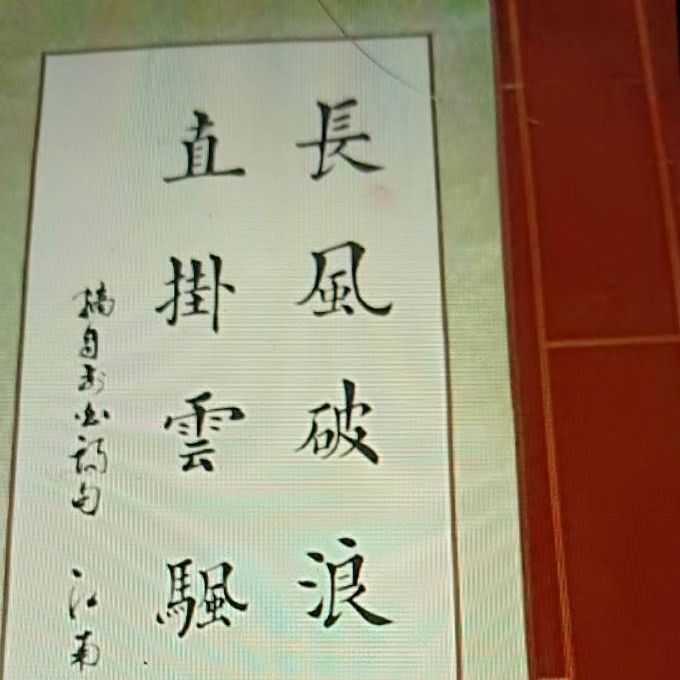 長風破浪
直掛雲颿
摘自 句 江南